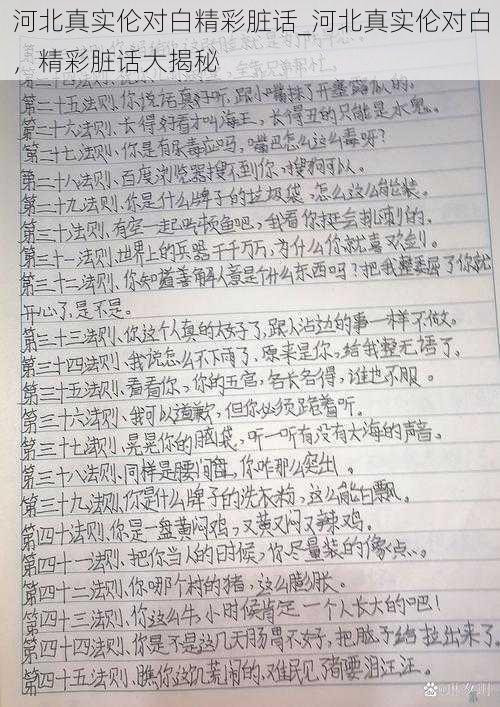 河北真实伦对白精彩脏话_河北真实伦对白
，精彩脏话大揭秘
第二十五法则、你说话真好听，跟小嘴抹了开塞露似的。
第二十六法则、长得好看才叫海王，长得丑的只能是水鬼。
第二十七法则、你是有尿毒症吗，嘴巴怎么这么毒呀？
第二十八法则、百度浏览器搜不到你，搜狗可以。
第二十九法则、你是什么牌子的垃圾袋、怎么这么能装。
第三十法则、有空一起吃顿鱼吧，我看你挺会挑刺的。
第三十一法则、世界上的兵器千千万万，为什么你就喜欢剑。
第三十二法则、你知道善解人意是什么东西吗？把我整委屈了你就
开心了，是不是。
第三十三法则、你这个人真的太好了，跟人沾边的事一样不做。
第三十四法则、我说怎么不下雨了，原来是你，给我整无语了。
第三十五法则、看看你，你的五官，各长各得，谁也不服。
第三十六法则、我可以道歉，但你必须跪着听。
第三十七法则、晃晃你的脑袋，听一听有没有大海的声音。
第三十八法则、同样是腰间盘，你咋那么突出。
第三十九法则、你是什么牌子的洗衣粉，这么能白飘。
第四十法则、你是一盘黄闷鸡，又黄又闷又辣鸡。
第四十一法则、把你当人的时候，你尽量装的像点、。
第四十二法则、你哪个村的猪，这么膨胀。
第四十三法则、你这么牛，小时候肯定一个人长大的吧！
第四十四法则、你是不是这几天肠胃不好，把脑子给拉出来了。
第四十五法则、瞧你这饥荒闹的，难民见了都要泪汪汪。